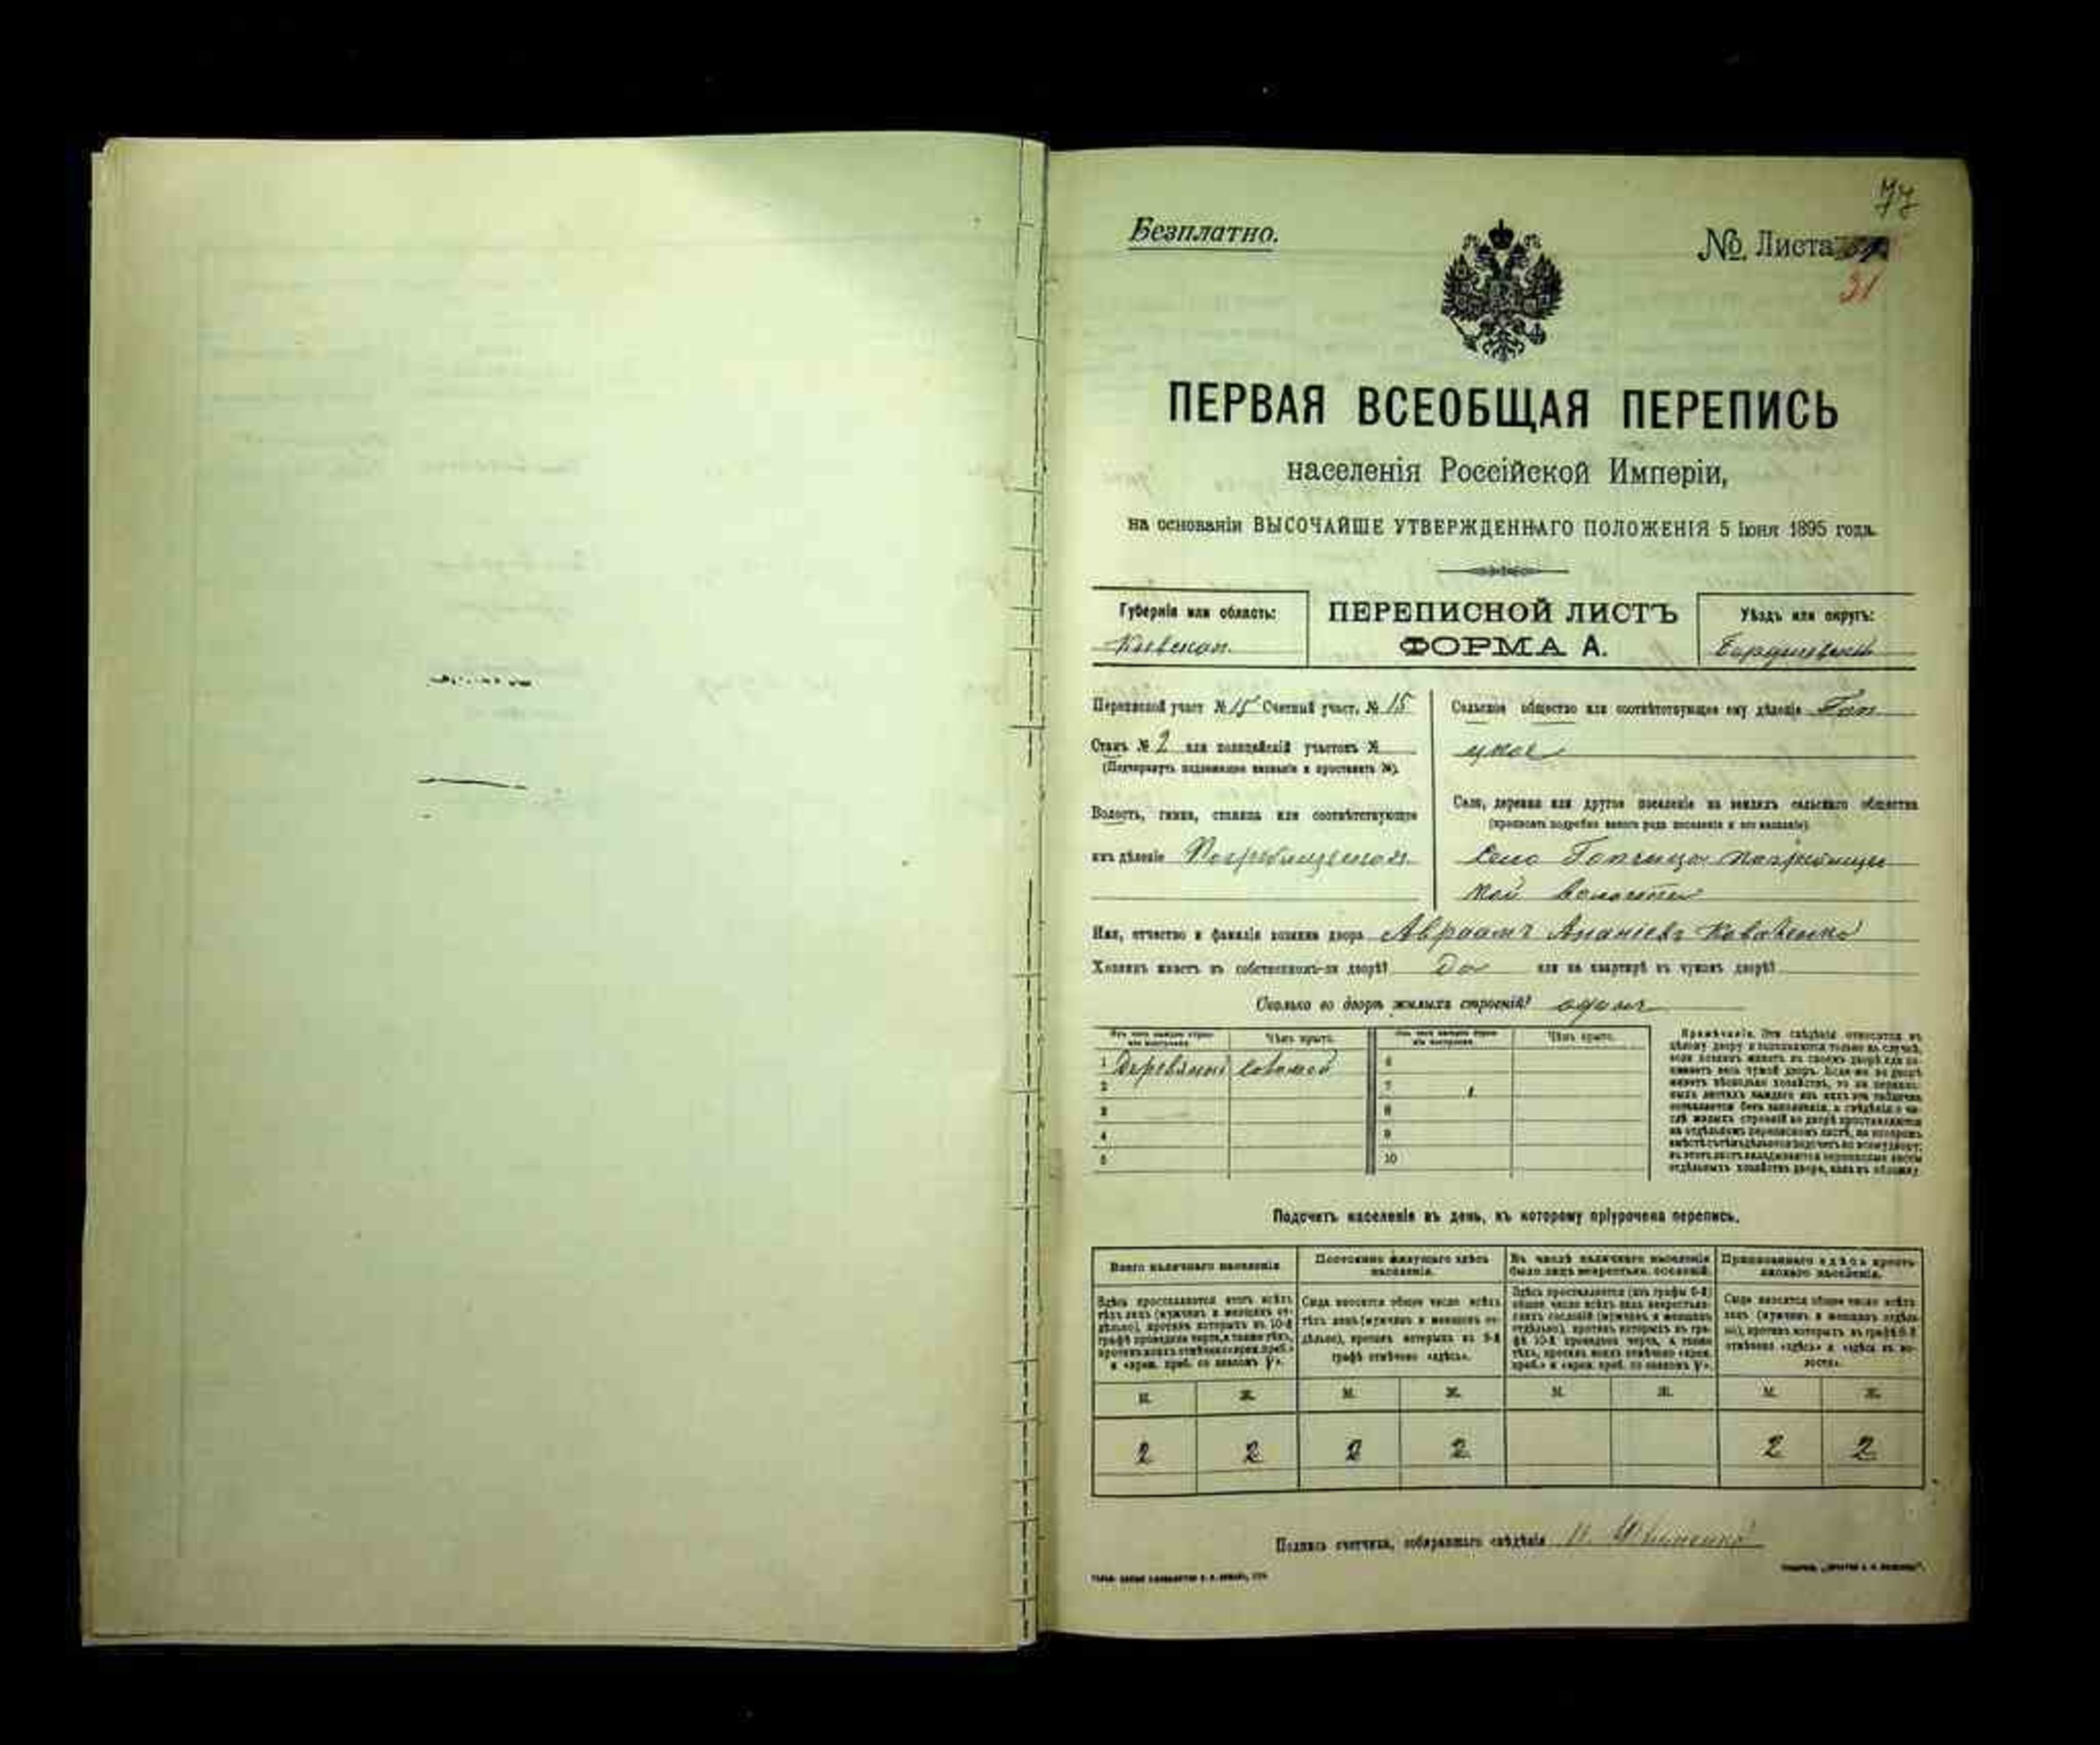 77
Безплатно.
№ Листа
31
ПЕРВАЯ ВСЕОБЩАЯ ПЕРЕПИСЬ
населенія Россійской Имперіи,
на основаніи ВЫСОЧАЙШЕ УТВЕРЖДЕННАГО ПОЛОЖЕНІЯ 5 Іюня 1895 года.
Губернія или область:
Кіевская.
ПЕРЕПИСНОЙ ЛИСТЪ
ФОРМА А.
Уѣздъ или округъ:
Бердичевскій
Переписной участ. № 15 Счетный участ. № 15
Станъ № 2 или полицейскій участокъ №
(Подчеркнуть подлежащее названіе и проставить №).
Волость, гмина, станица или соотвѣтствующее
имъ дѣленіе Погребищенская
Сельское общество или соотвѣтствующее ему дѣленіе Гоп
цкое
Село, деревня или другое поселеніе на земляхъ сельскаго общества
(прописать подробно какого рода поселеніе и его названіе)
Село Гопчица Погребищенс
кой волости
Имя, отчество и фамилія хозяина двора Авраамъ Ананіевъ Коваленко
Хозяинъ живетъ въ собственномъ-ли дворѣ? Да или на квартирѣ въ чужомъ дворѣ?
Сколько во дворѣ жилыхъ строеній? одинъ
Изъ чего каждое строе-
ніе построено. Чѣмъ крыто. Изъ чего каждое строе-
ніе построено. Чѣмъ крыто.
1 Деревянн соломой 6
2 7
3 8
4 9
5 10
Примѣчаніе. Эти свѣдѣнія относятся къ
цѣлому двору и заполняются только въ случаѣ,
если хозяинъ живетъ въ своемъ дворѣ или за-
нимаетъ весь чужой дворъ. Если-же во дворѣ
живетъ нѣсколько хозяйствъ, то на перепис-
ныхъ листахъ каждаго изъ нихъ эта табличка
оставляется безъ заполненія, а свѣдѣнія о чи-
слѣ жилыхъ строеній во дворѣ проставляются
на отдѣльномъ переписномъ листѣ, на которомъ
въ этотъ листъ вкладываются переписные листы
отдѣльныхъ хозяйствъ двора, какъ въ обложку.
Подсчетъ населенія въ день, къ которому пріурочена перепись.
Всего наличнаго населенія
Постоянно живущаго здѣсь
населенія.
Въ числѣ наличнаго населенія
было лицъ некрестьян. сословій.
Приписаннаго здѣсь кресть-
янскаго населенія.
Здѣсь проставляется итогъ всѣхъ
тѣхъ лицъ (мужчинъ и женщинъ от-
дѣльно), противъ которыхъ въ 10-й
графѣ проведена черта, а также тѣхъ,
противъ коихъ отмѣчено «врем. преб.»
и «врем. преб. со знакомъ V».
Сюда вносится общее число всѣхъ
тѣхъ лицъ (мужчинъ и женщинъ от-
дѣльно), противъ которыхъ въ 9-й
графѣ отмѣчено «здѣсь».
Здѣсь проставляется (изъ графы 6-й)
общее число всѣхъ лицъ некрестьян-
скихъ сословій (мужчинъ и женщинъ
отдѣльно), противъ которыхъ въ гра-
фѣ 10-й проведена черта, а также
тѣхъ, противъ коихъ отмѣчено «врем.
преб.» и «врем. преб. со знакомъ V».
Сюда вносится общее число всѣхъ
лицъ (мужчинъ и женщинъ отдѣль-
но), противъ которыхъ въ графѣ 8-й
отмѣчено «здѣсь» и «здѣсь въ во-
лости».
М. Ж. М. Ж. М. Ж. М. Ж.
2 2 2 2 2 2
Подпись счетчика, собиравшаго свѣдѣнія